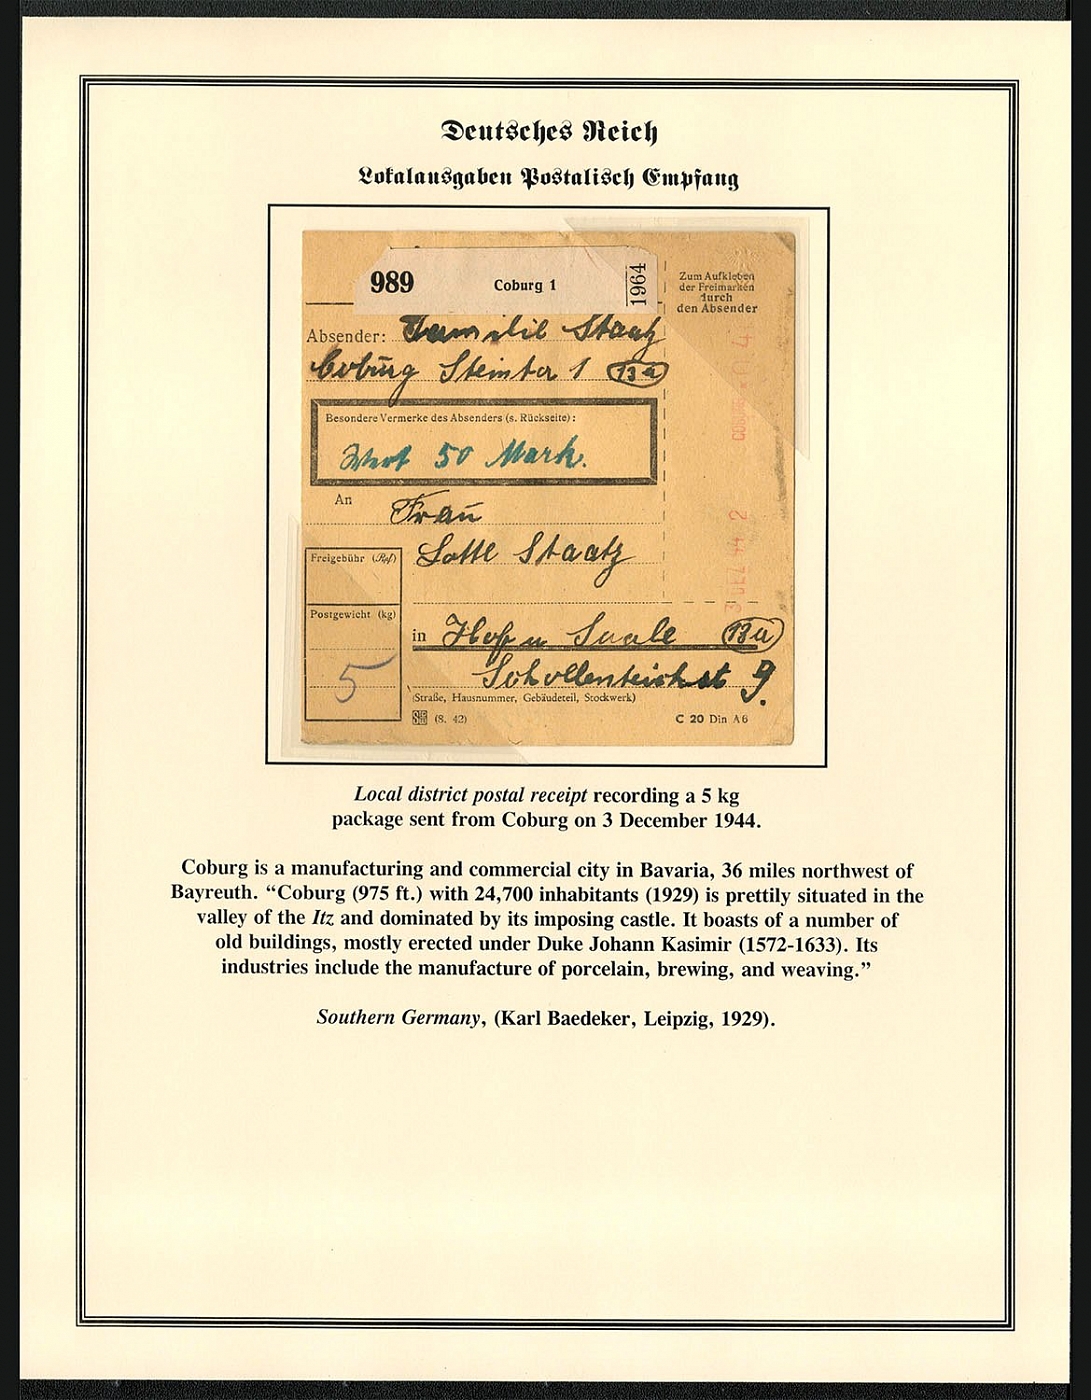 Deutsches Reich
Lokalausgaben Postalisch Empfang
989 Coburg 1 1964
Zum Aufkleben
der Freimarken
durch
den Absender
Absender: Familie Staatz
Coburg Steintor 1 13a
Besondere Vermerke des Absenders (s. Rückseite):
Wert 50 Mark.
An Frau
Lotte Staatz
Freigebühr (Rpf)
Postgewicht (kg)
5
in Hof a Saale 13a
Schollenteichst 9.
(Straße, Hausnummer, Gebäudeteil, Stockwerk)
(8. 42)
C 20 Din A6
3 DEZ 44 2
Local district postal receipt recording a 5 kg
package sent from Coburg on 3 December 1944.
Coburg is a manufacturing and commercial city in Bavaria, 36 miles northwest of
Bayreuth. “Coburg (975 ft.) with 24,700 inhabitants (1929) is prettily situated in the
valley of the Itz and dominated by its imposing castle. It boasts of a number of
old buildings, mostly erected under Duke Johann Kasimir (1572-1633). Its
industries include the manufacture of porcelain, brewing, and weaving.”
Southern Germany, (Karl Baedeker, Leipzig, 1929).